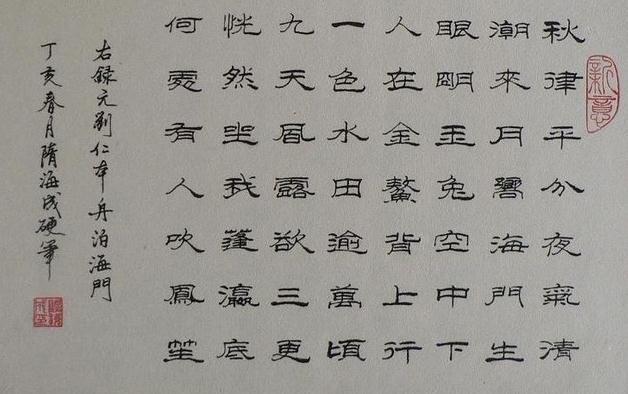 新意
秋律平分夜氣清
潮來月響海門生
眼明玉兔空中下
人在金鰲背上行
一色水田逾萬頃
九天風露欲三更
恍然坐我蓬瀛底
何處有人吹鳳笙
右録元劉仁本舟泊海門
丁亥春月隋海成硬筆